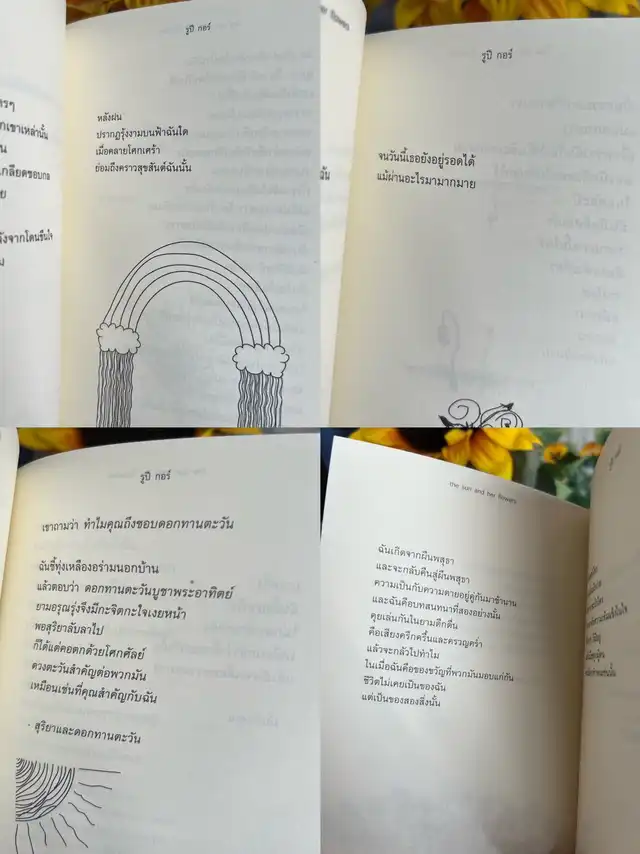 รูปี กอร์
her flowers
หลังฝน
ปรากฏรุ้งงามบนฟ้าฉันใด
เมื่อคลายโศกเศร้า
ย่อมถึงคราวสุขสันต์ฉันนั้น
รูปี กอร์
จนวันนี้เธอยังอยู่รอดได้
แม้ผ่านอะไรมามากมาย
รูปี กอร์
เขาถามว่า ทำไมคุณถึงชอบดอกทานตะวัน
ฉันชี้ทุ่งเหลืองอร่ามนอกบ้าน
แล้วตอบว่า ดอกทานตะวันบูชาพระอาทิตย์
ยามอรุณรุ่งจึงมีกะจิตกะใจเงยหน้า
พอสุริยาลับลาไป
ก็ได้แต่คอตกด้วยโศกศัลย์
ดวงตะวันสำคัญต่อพวกมัน
เหมือนเช่นที่คุณสำคัญกับฉัน
- สุริยาและดอกทานตะวัน
the sun and her flowers
ฉันเกิดจากผืนพสุธา
และจะกลับคืนสู่ผืนพสุธา
ความเป็นกับความตายอยู่คู่กันมาช้านาน
และฉันคือบทสนทนาที่สองอย่างนั้น
คุยเล่นกันในยามดึกดื่น
คือเสียงครึกครื้นและครวญคร่ำ
แล้วจะกลัวไปทำไม
ในเมื่อฉันคือของขวัญที่พวกมันมอบแก่กัน
ชีวิตไม่เคยเป็นของฉัน
แต่เป็นของสองสิ่งนั้น